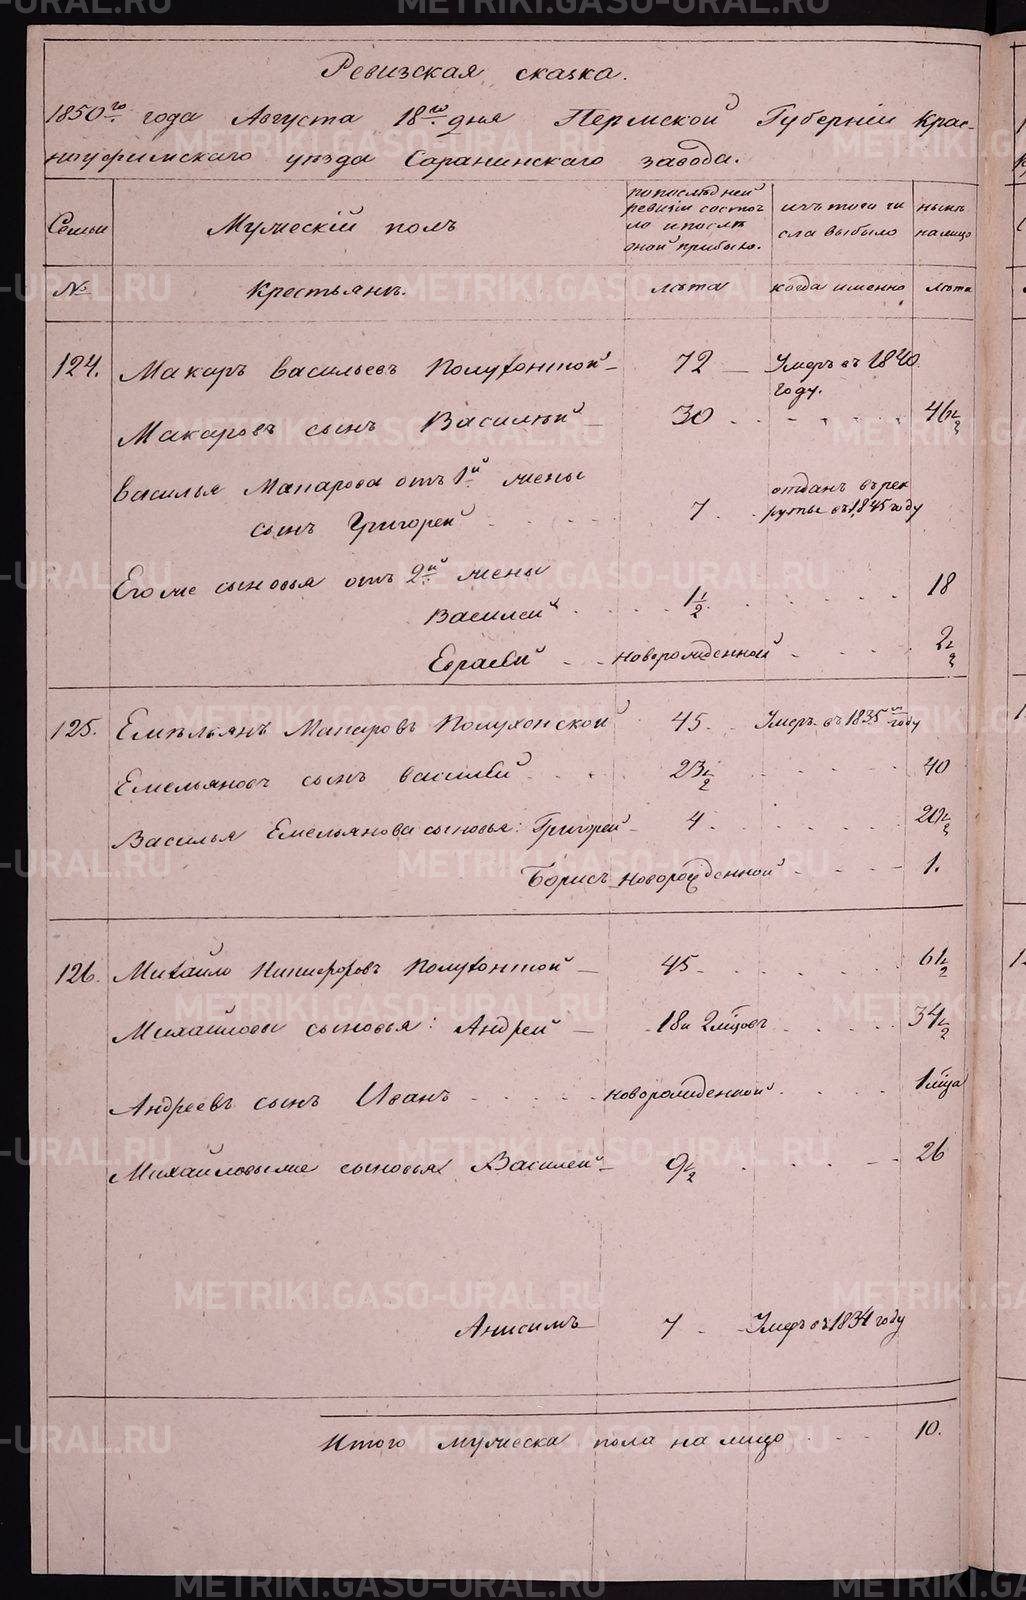 Ревизская сказка.
1850го года Августа 18го дня Пермской Губерніи Крас-
ноуфимскаго уезда Саранинскаго завода.
Семьи
Мужескій полъ
по последней ревизіи состоя
ло и после
оной прибыло.
изъ того чи
сла выбыло
ныне
на лицо
№
Крестьяне.
лета
когда именно
лета
124. Макаръ Васильевъ Полухонской 72 Умеръ въ 1840
году.
Макаровъ сынъ Василей 30 46 1/2
Василья Макарова отъ 1й жены отданъ въ рек
сынъ Григорей 7 руты въ 1845 году
Его же сыновья отъ 2й жены
Василей 1 1/2 18
новорожденной 2 1/2
125. Емельянъ Макаровъ Полухонской 45 Умеръ въ 1835м году
Емельяновъ сынъ Василей 23 1/2 40
Василья Емельянова сыновья: Григорей 4 20 1/2
Борисъ новорожденной 1.
126. Михайло Никифоровъ Полухонской 45 61 1/2
Михайловы сыновья: Андрей 18 и 2 мцовъ 34 1/2
Андреевъ сынъ Иванъ новорожденной 1 мца
Михайловы же сыновья Василей 9 1/2 26
Анисимъ 7 Умеръ въ 1834 году
Итого мужеска пола на лицо 10.
METRIKI.GASO-URAL.RU